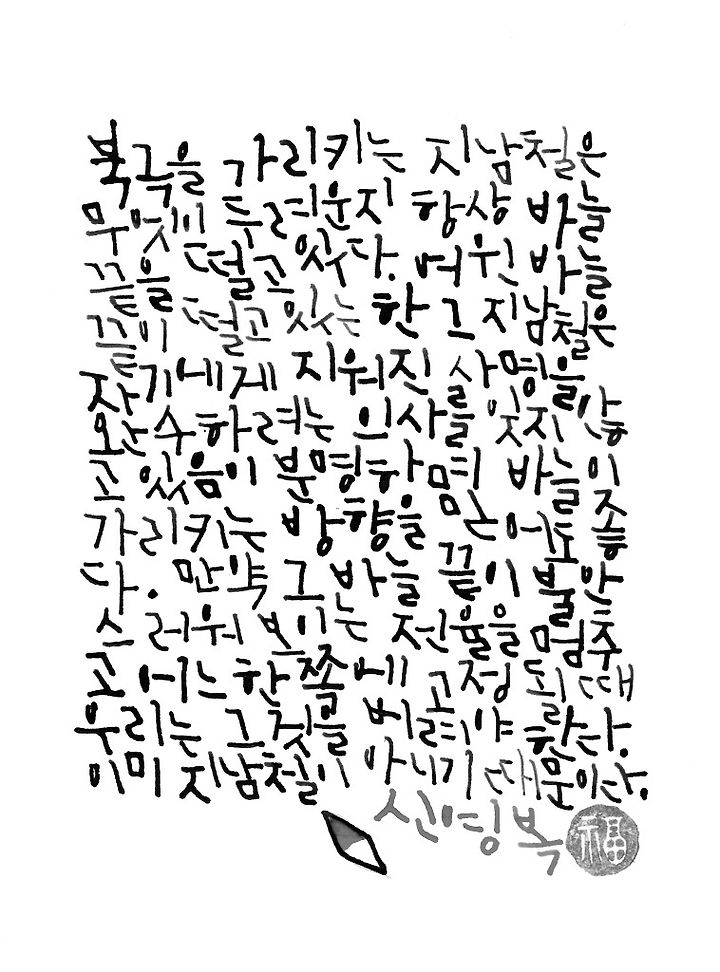 북극을 가리키는 지남철은
무엇이 두려운지 항상 바늘
끝을 떨고 있다. 여윈 바늘
끝이 떨고 있는 한 그 지남철은
자기에게 지워진 사명을
완수하려는 의사를 잊지 않
고 있음이 분명하며 바늘이
가리키는 방향을 믿어도 좋
다. 만약 그 바늘 끝이 불안
스러워 보이는 전율을 멈추
고 어느 한쪽에 고정될 때
우리는 그것을 버려야 한다.
이미 지남철이 아니기 때문이다.
신영복 福